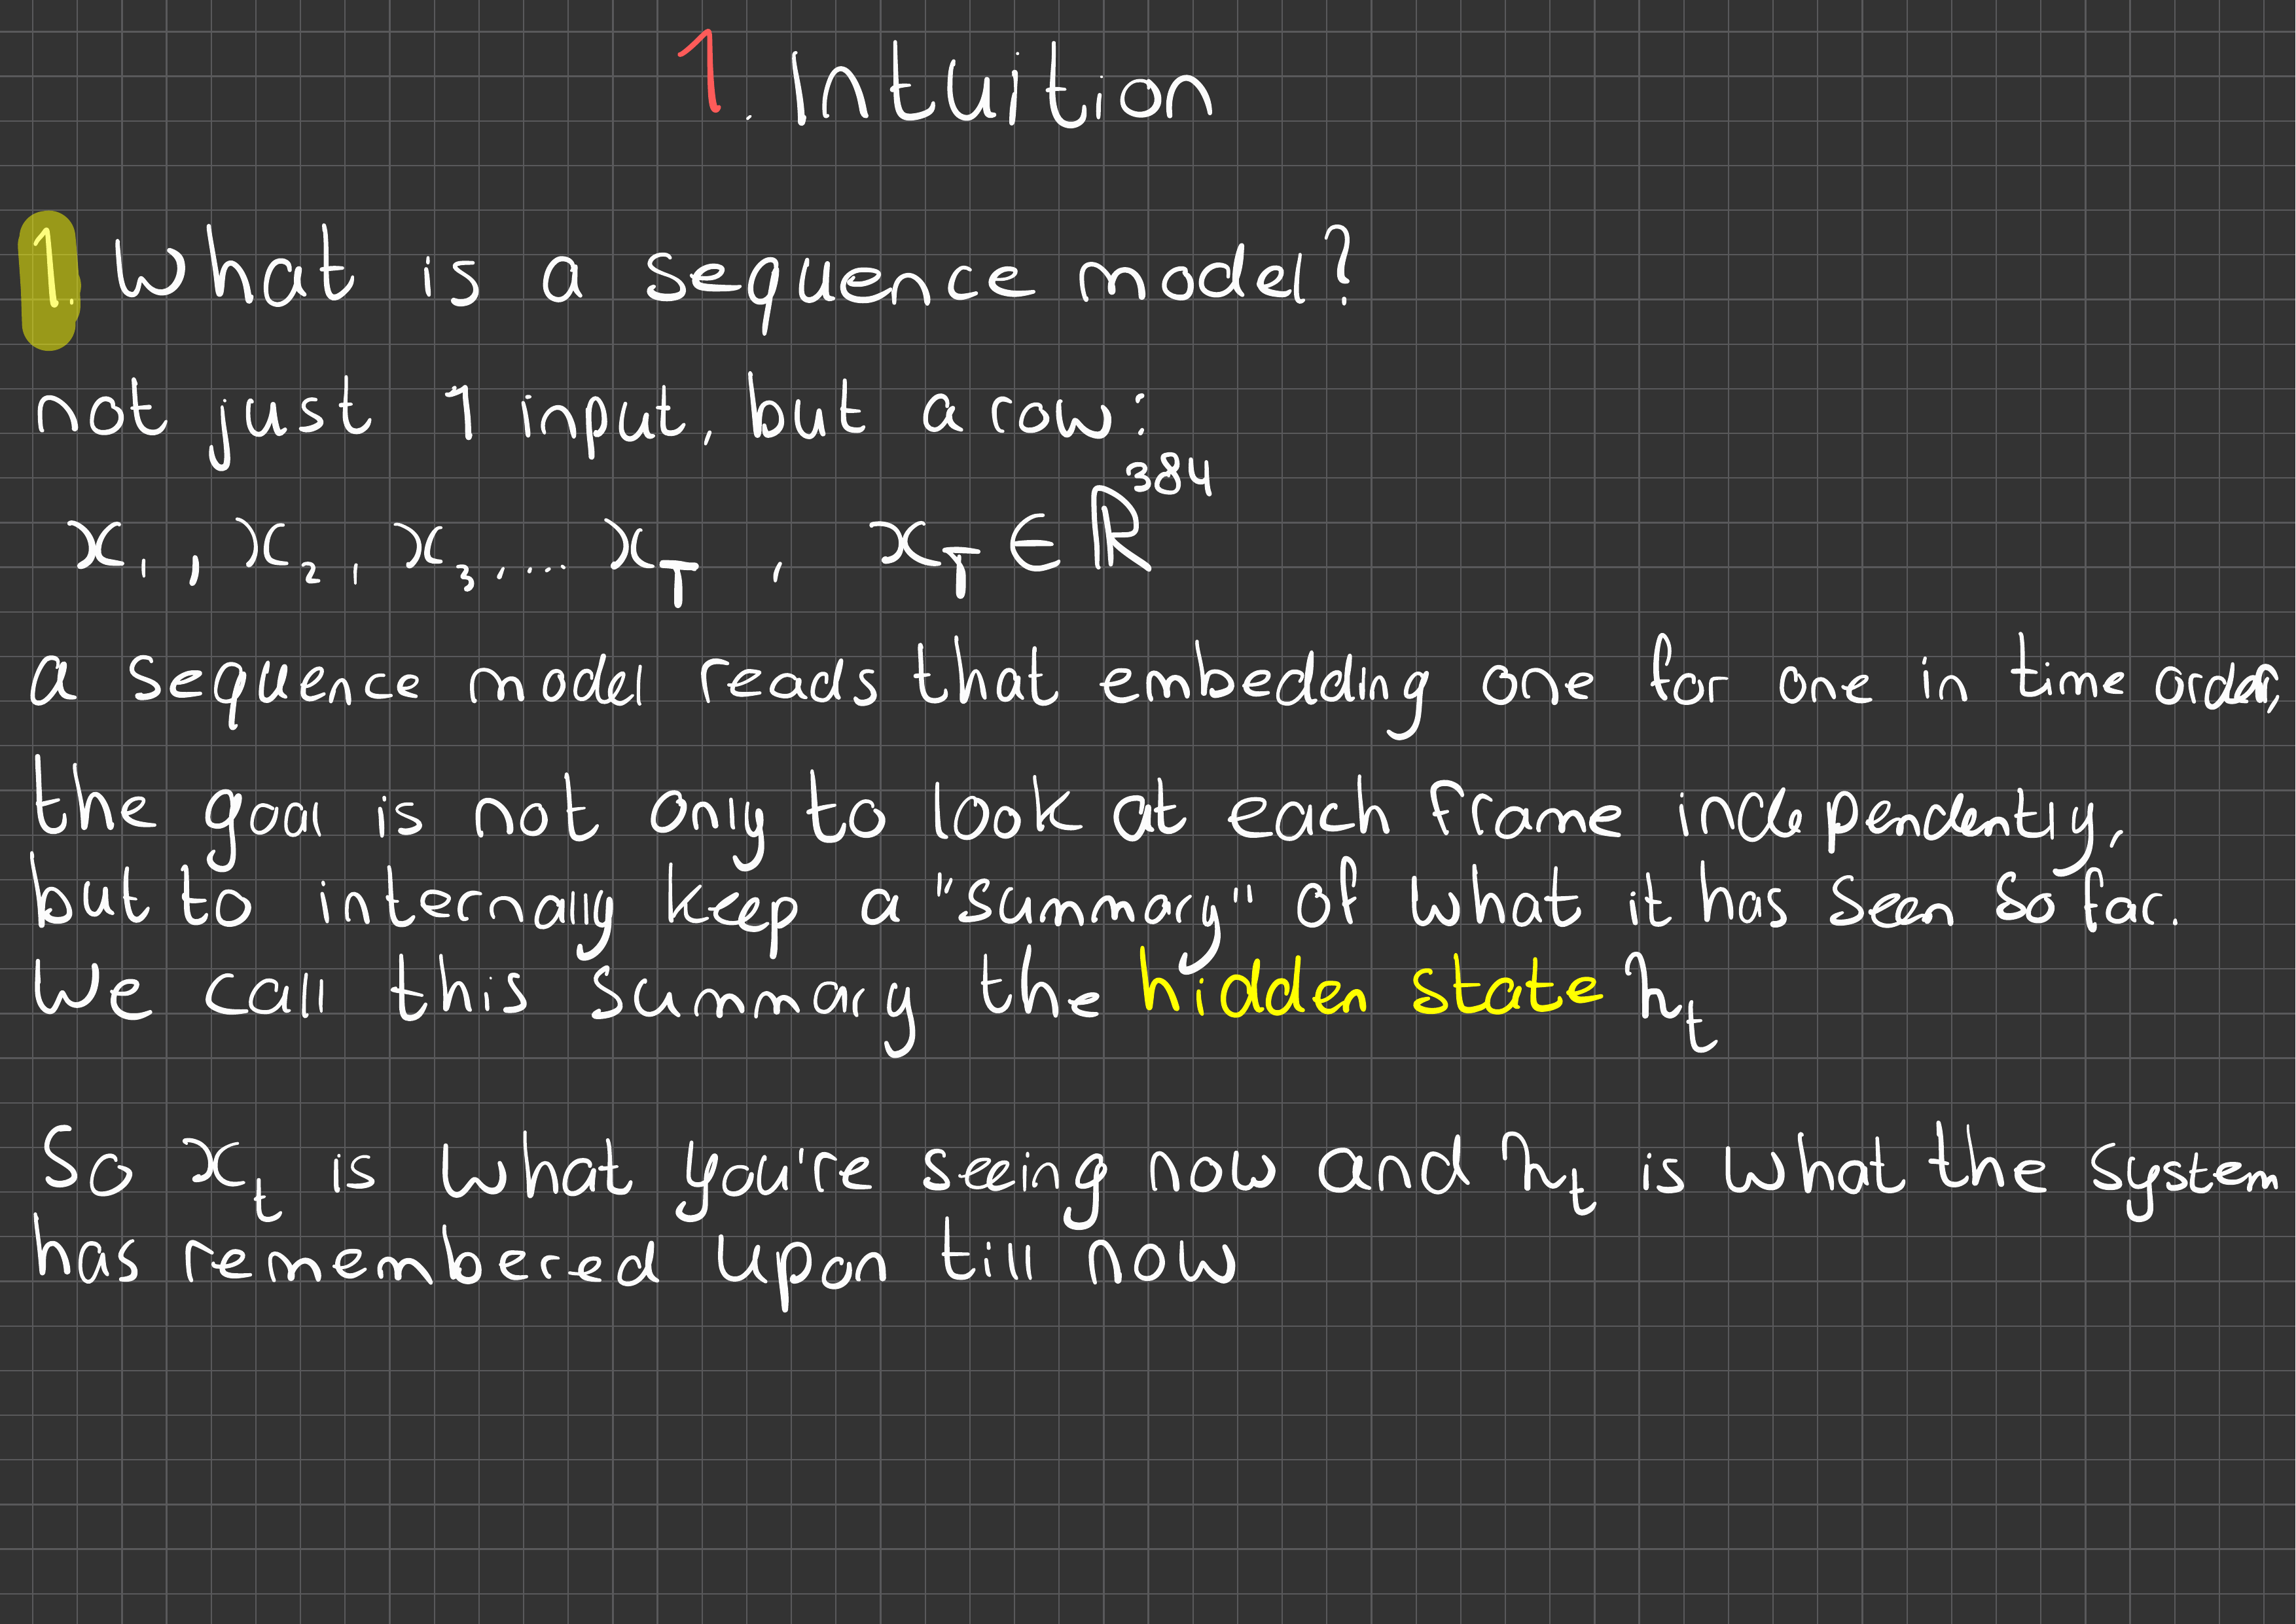 1. Intuition
1. What is a sequence model?
not just 1 input, but a row:
x₁, x₂, x₃, ... x_T , x_T ∈ ℝ³⁸⁴
a sequence model reads that embedding one for one in time order,
the goal is not only to look at each frame independently,
but to internally keep a "summary" of what it has seen so far.
We call this summary the hidden state h_t
So x_t is what you're seeing now and h_t is what the system
has remembered upon till now